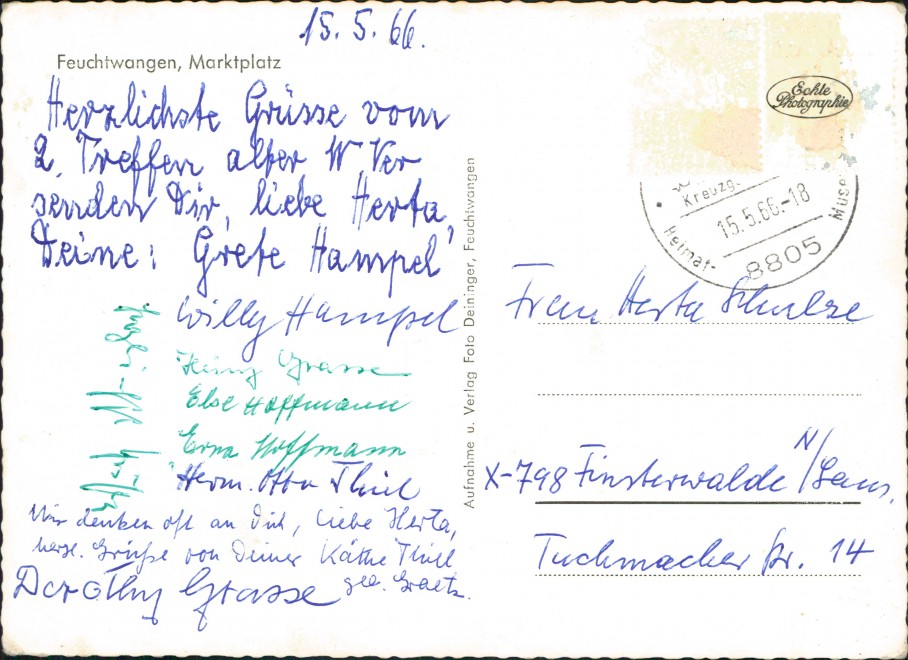 15. 5. 66.
Feuchtwangen, Marktplatz
Herzlichste Grüsse vom
2. Treffen alter W Ver
senden Dir, liebe Herta,
Deine: Grete Hampel
Willy Hampel
Heinz Grasse
Else Hoffmann
Erna Hoffmann
Herm. Otto Thiel
Wir denken oft an Dich, liebe Herta,
herzl. Grüße von Deiner Käthe Thiel
geb. Graetz.
Dorothy Grasse
Aufnahme u. Verlag Foto Deininger, Feuchtwangen
Echte
Photographie
Kreuzg.
15.5.66.-18
Heimat-
Muse
8805
Frau Herta Schulze
X-798 Finsterwalde N/Laus.
Tuchmacher Str. 14